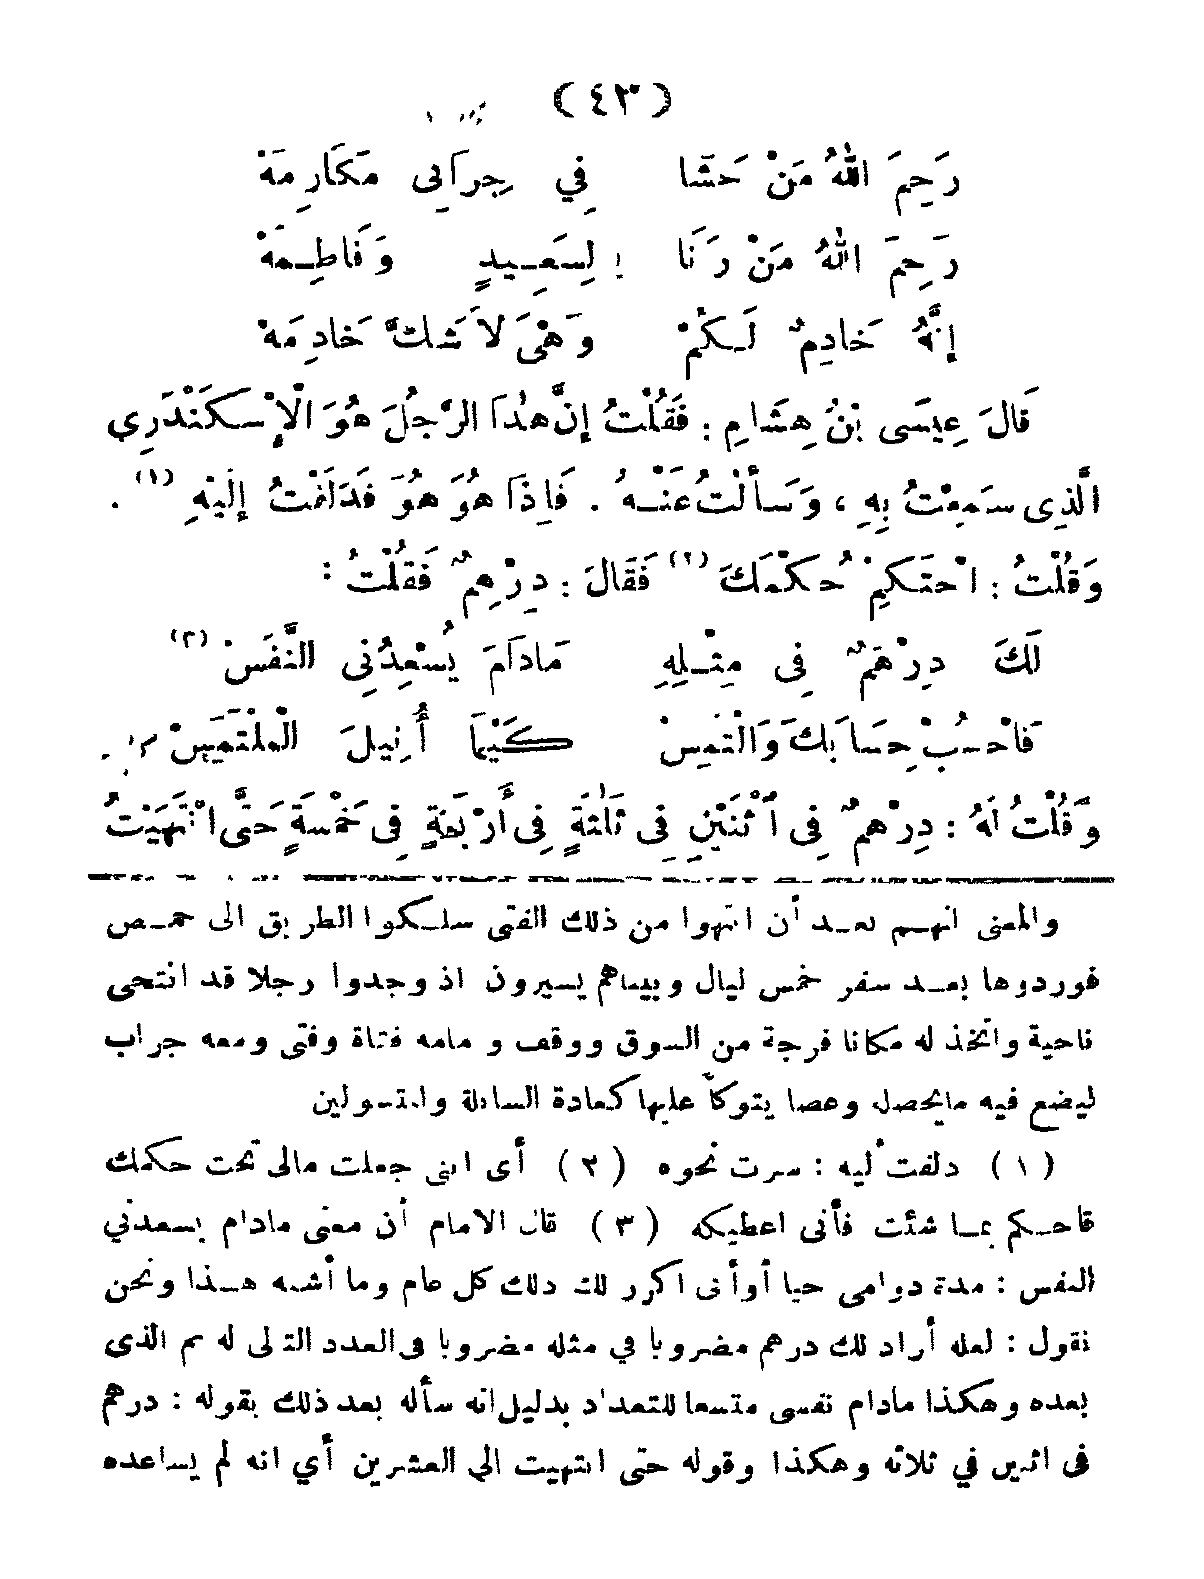 (٤٣)
رَحِمَ اللهُ مَنْ حَشَا فِي جِرَابِى مَكَارِمَهْ
رَحِمَ اللهُ مَنْ رَنَا لِسَعِيدٍ وَفَاطِمَهْ
إِنَّهُ خَادِمٌ لَكُمْ وَهْىَ لاَ شَكَّ خَادِمَهْ
قَالَ عِيسَى بْنُ هِشَامٍ : فَقُلْتُ إِنَّ هٰذَا الرَّجُلَ هُوَ الْإِسْكَنْدَرِي
الَّذِى سَمِعْتُ بِهِ ، وَسَأَلْتُ عَنْهُ . فَإِذَا هُوَ هُوَ فَدَلَفْتُ إِلَيْهِ (١) .
وَقُلْتُ : احْتَكِمْ حُكْمَكَ (٢) فَقَالَ : دِرْهِمٌ فَقُلْتُ :
لَكَ دِرْهَمٌ فِى مِثْلِهِ مَادَامَ يُسْعِدُنِى النَّفَسْ (٣)
فَاحْسُبْ حِسَابَكَ وَالْتَمِسْ كَيْمَا أُنِيلَ الْمُلْتَمِسْ
وَقُلْتُ لَهُ : دِرْهَمٌ فِى اثْنَيْنِ فِى ثَلَاثَةٍ فِى أَرْبَعَةٍ فِى خَمْسَةٍ حَتَّى انْتَهَيْتُ
والمعنى انهم بعد أن انتهوا من ذلك الفتى سلكوا الطريق الى حمص
فوردوها بعد سفر خمس ليال وبيناهم يسيرون اذ وجدوا رجلا قد انتحى
ناحية واتخذ له مكانا فرجة من السوق ووقف و مامه فتاة وفتى ومعه جراب
ليضع فيه مايحصل وعصا يتوكأ عليها كعادة السائلة والمتسولين
(١) دلفت أليه : سرت نحوه (٢) أى انى جعلت مالى تحت حكمك
فاحكم بما شئت فأنى اعطيكه (٣) قال الامام أن معنى مادام يسعدني
النفس : مدة دوامى حيا أوأنى اكرر لك ذلك كل عام وما أشبه هذا ونحن
نقول : لعله أراد لك درهم مضروبا في مثله مضروبا فى العدد التالى له ثم الذى
بعده وهكذا مادام نفسى متسعا للتعداد بدليل انه سأله بعد ذلك بقوله : درهم
فى اثنين في ثلاثه وهكذا وقوله حتى انتهيت الى العشرين أي انه لم يساعده